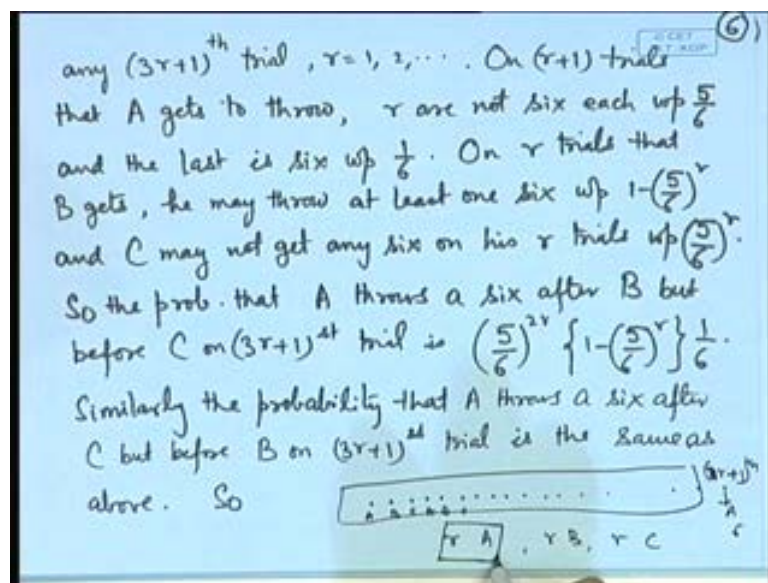 6
© CET
I.I.T. KGP
any (3r+1)th trial, r=1, 2, .... On (r+1) trials
that A gets to throw, r are not six each wp 5/6
and the last is six wp 1/6. On r trials that
B gets, he may throw at least one six wp 1-(5/6)^r
and C may not get any six on his r trials wp (5/6)^r.
So the prob. that A throws a six after B but
before C on (3r+1)st trial is (5/6)^2r {1-(5/6)^r} 1/6.
Similarly the probability that A throws a six after
C but before B on (3r+1)st trial is the same as
above. So
(3r+1)th
A
6
r A, r B, r C